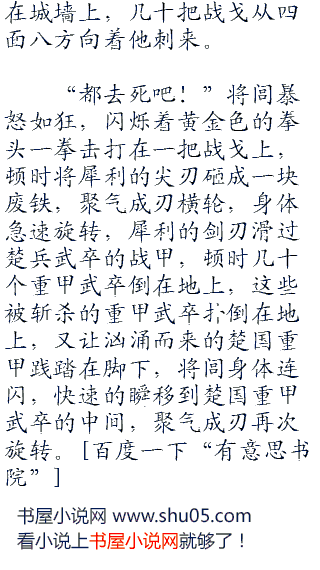 在城墙上，几十把战戈从四
面八方向着他刺来。
“都去死吧！”将闾暴
怒如狂，闪烁着黄金色的拳
头一拳击打在一把战戈上，
顿时将犀利的尖刃砸成一块
废铁，聚气成刃横轮，身体
急速旋转，犀利的剑刃滑过
楚兵武卒的战甲，顿时几十
个重甲武卒倒在地上，这些
被斩杀的重甲武卒扑倒在地
上，又让汹涌而来的楚国重
甲践踏在脚下，将闾身体连
闪，快速的瞬移到楚国重甲
武卒的中间，聚气成刃再次
旋转。[百度一下“有意思书
院”]
书屋小说网 www.shu05.com
看小说上书屋小说网就够了！